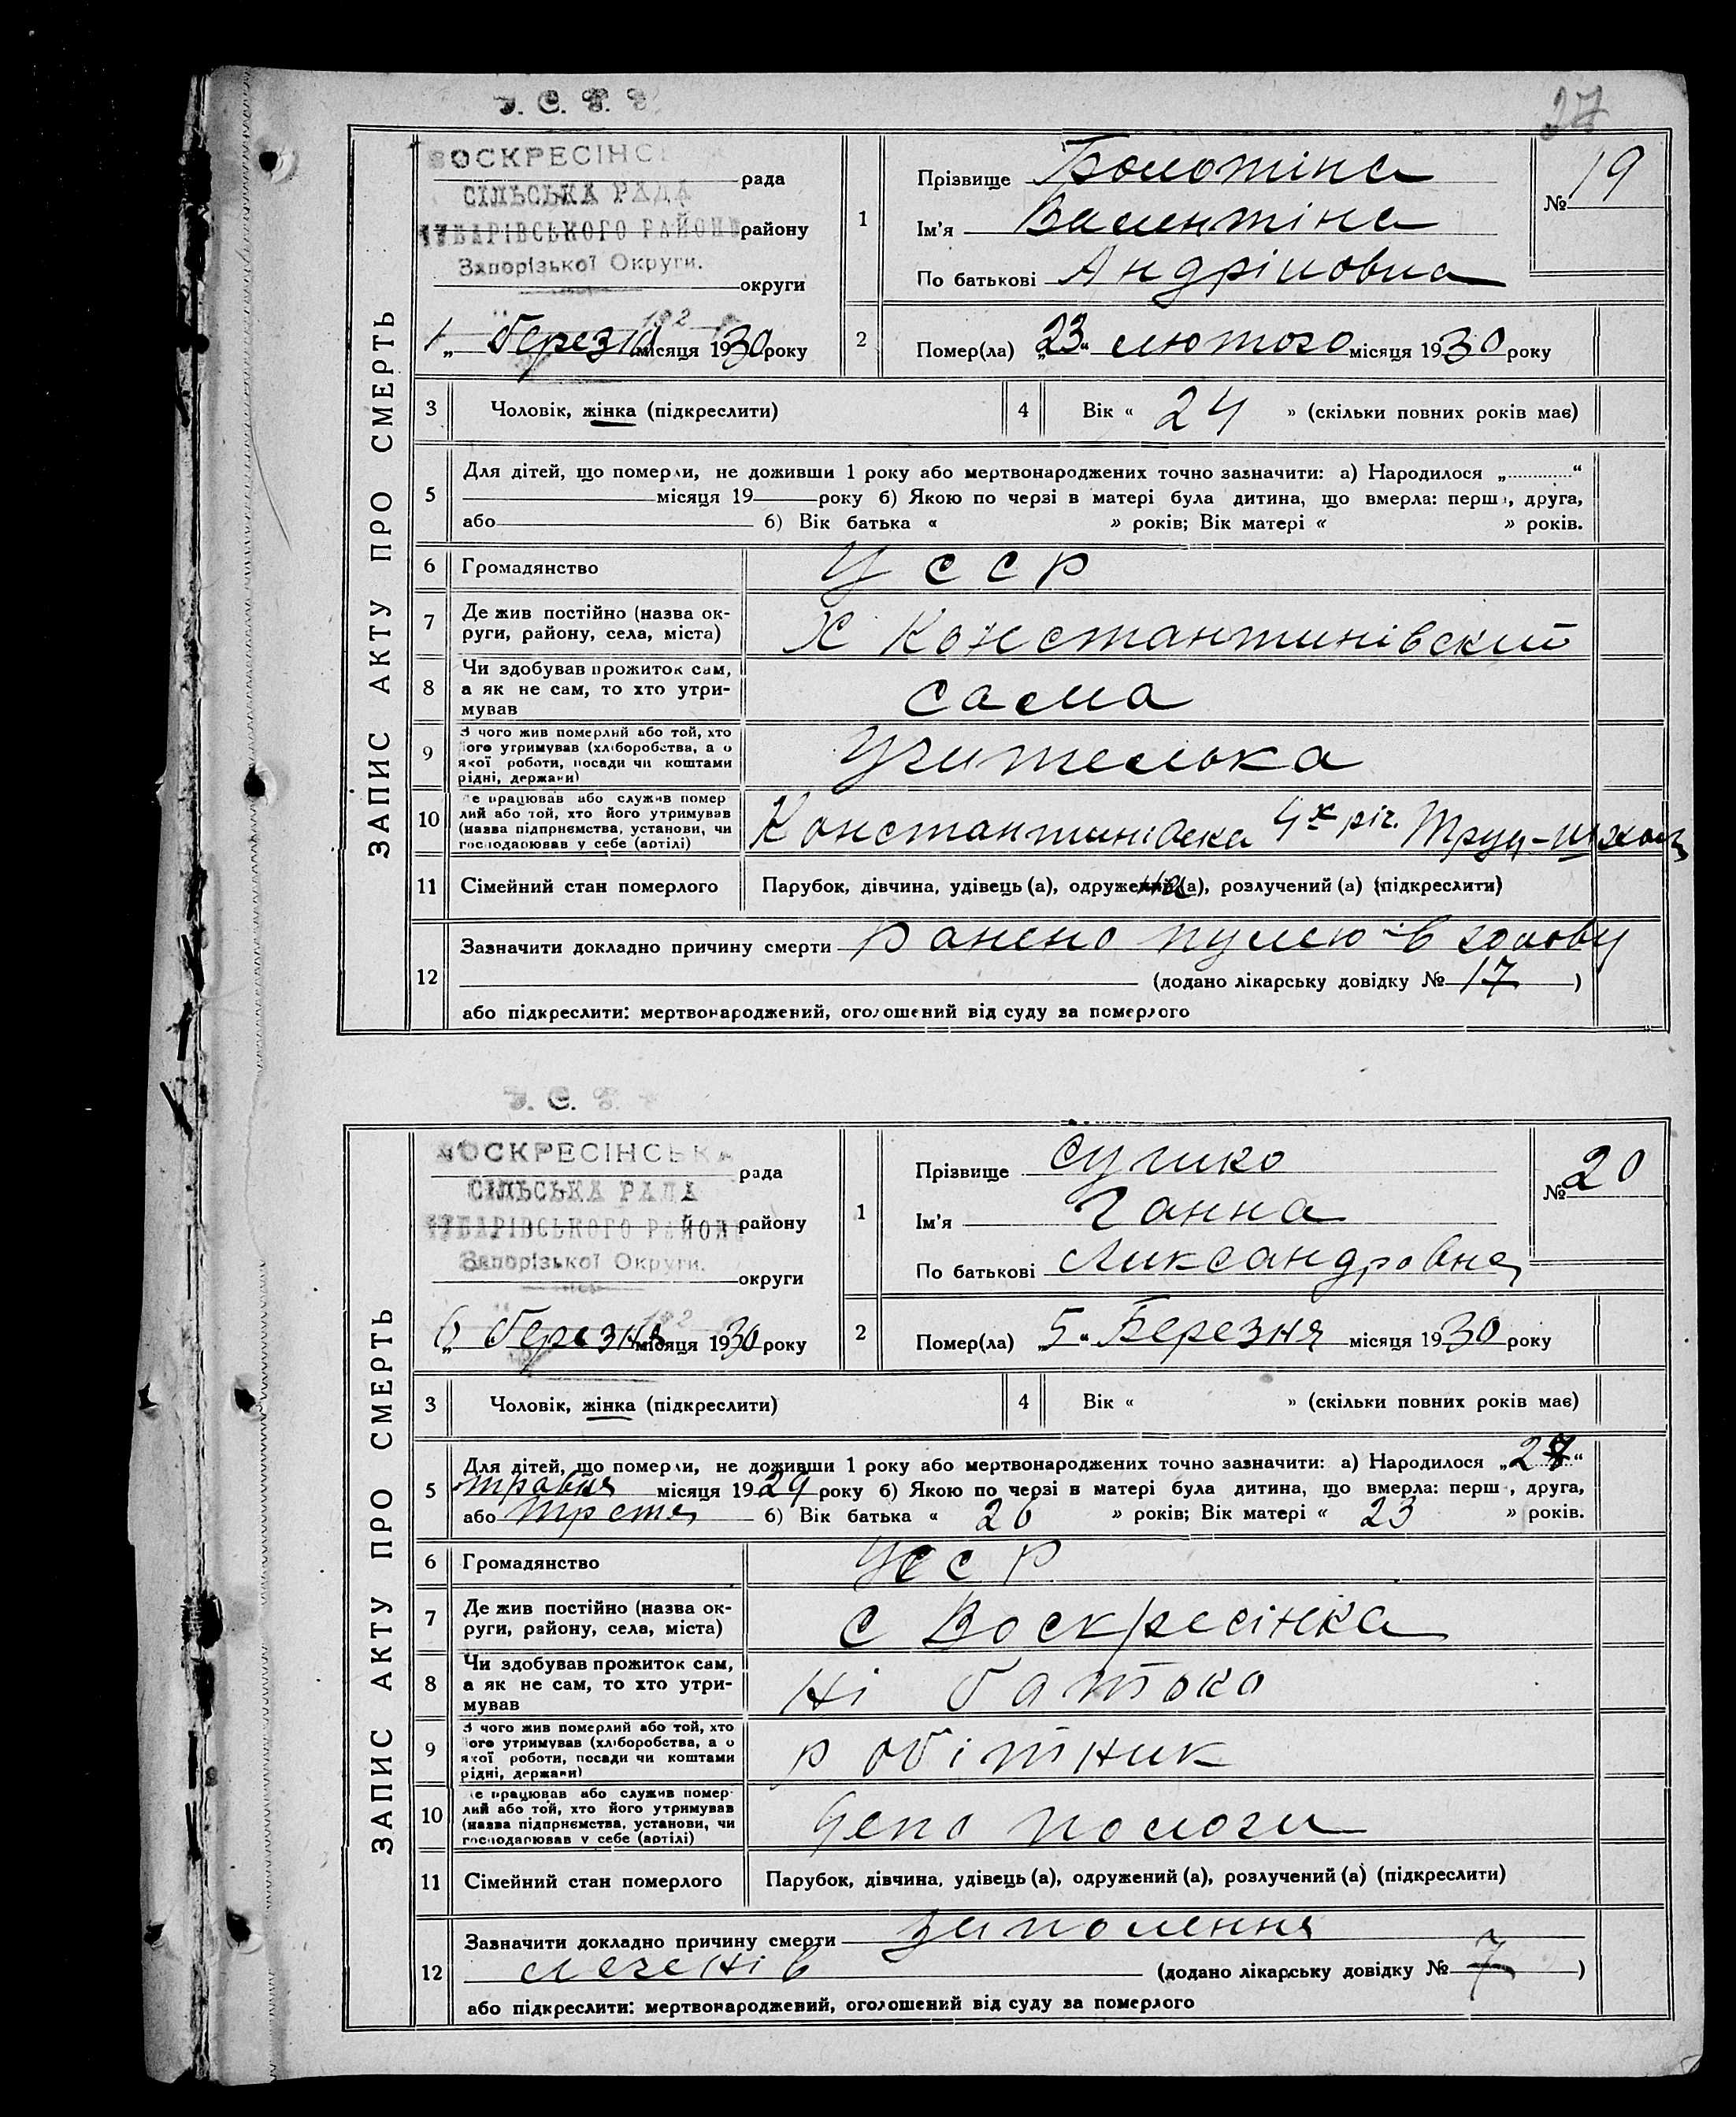 27
У. С. Р. Р.
ЗАПИС АКТУ ПРО СМЕРТЬ
ВОСКРЕСІНСЬ рада
СІЛЬСЬКА РАДА
ЧУБАРІВСЬКОГО РАЙОНУ району
Запорізької Округи.
округи
192
1 „ березня місяця 1930 року
1
Прізвище Болотіна
Ім'я Валентіна
По батькові Андріповна
№ 19
2 Помер(ла) „23“ лютого місяця 1930 року
3 Чоловік, жінка (підкреслити)
4 Вік « 24 » (скільки повних років має)
5 Для дітей, що померли, не доживши 1 року або мертвонароджених точно зазначити: а) Народилося „ “
місяця 19 року б) Якою по черзі в матері була дитина, що вмерла: перша, друга,
або б) Вік батька « » років; Вік матері « » років.
6 Громадянство УССР
7 Де жив постійно (назва ок-
руги, району, села, міста) Х Константинівский
8 Чи здобував прожиток сам,
а як не сам, то хто утри-
мував сама
9 З чого жив померлий або той, хто
його утримував (хліборобства, або
якої роботи, посади чи коштами
рідні, держави) Учителька
10 Де працював або служив помер
лий або той, хто його утримував
(назва підприємства, установи, чи
господарював у себе (артілі) Константинівска 4х річ. Труд-школ
11 Сімейний стан померлого Парубок, дівчина, удівець (а), одружена (а), розлучений (а) (підкреслити)
12 Зазначити докладно причину смерти ранено пулею в голову
(додано лікарську довідку № 17 )
або підкреслити: мертвонароджений, оголошений від суду за померлого
У. С. Р.
ЗАПИС АКТУ ПРО СМЕРТЬ
ВОСКРЕСІНСЬКА рада
СІЛЬСЬКА РАДА
ЧУБАРІВСЬКОГО РАЙОНУ району
Запорізької Округи.
округи
192
6 „ березня місяця 1930 року
1
Прізвище Сушко
Ім'я Ганна
По батькові Александровна
№ 20
2 Помер(ла) „5“ Березня місяця 1930 року
3 Чоловік, жінка (підкреслити)
4 Вік « » (скільки повних років має)
5 Для дітей, що померли, не доживши 1 року або мертвонароджених точно зазначити: а) Народилося „27“
травня місяця 1929 року б) Якою по черзі в матері була дитина, що вмерла: перша, друга,
або третя б) Вік батька « 26 » років; Вік матері « 23 » років.
6 Громадянство УССР
7 Де жив постійно (назва ок-
руги, району, села, міста) с Воскресінка
8 Чи здобував прожиток сам,
а як не сам, то хто утри-
мував ні батько
9 З чого жив померлий або той, хто
його утримував (хліборобства, або
якої роботи, посади чи коштами
рідні, держави) робітник
10 Де працював або служив помер-
лий або той, хто його утримував
(назва підприємства, установи, чи
господарював у себе (артілі) депо пологи
11 Сімейний стан померлого Парубок, дівчина, удівець (а), одружений (а), розлучений (а) (підкреслити)
12 Зазначити докладно причину смерти заполення
легенів (додано лікарську довідку № 7 )
або підкреслити: мертвонароджений, оголошений від суду за померлого